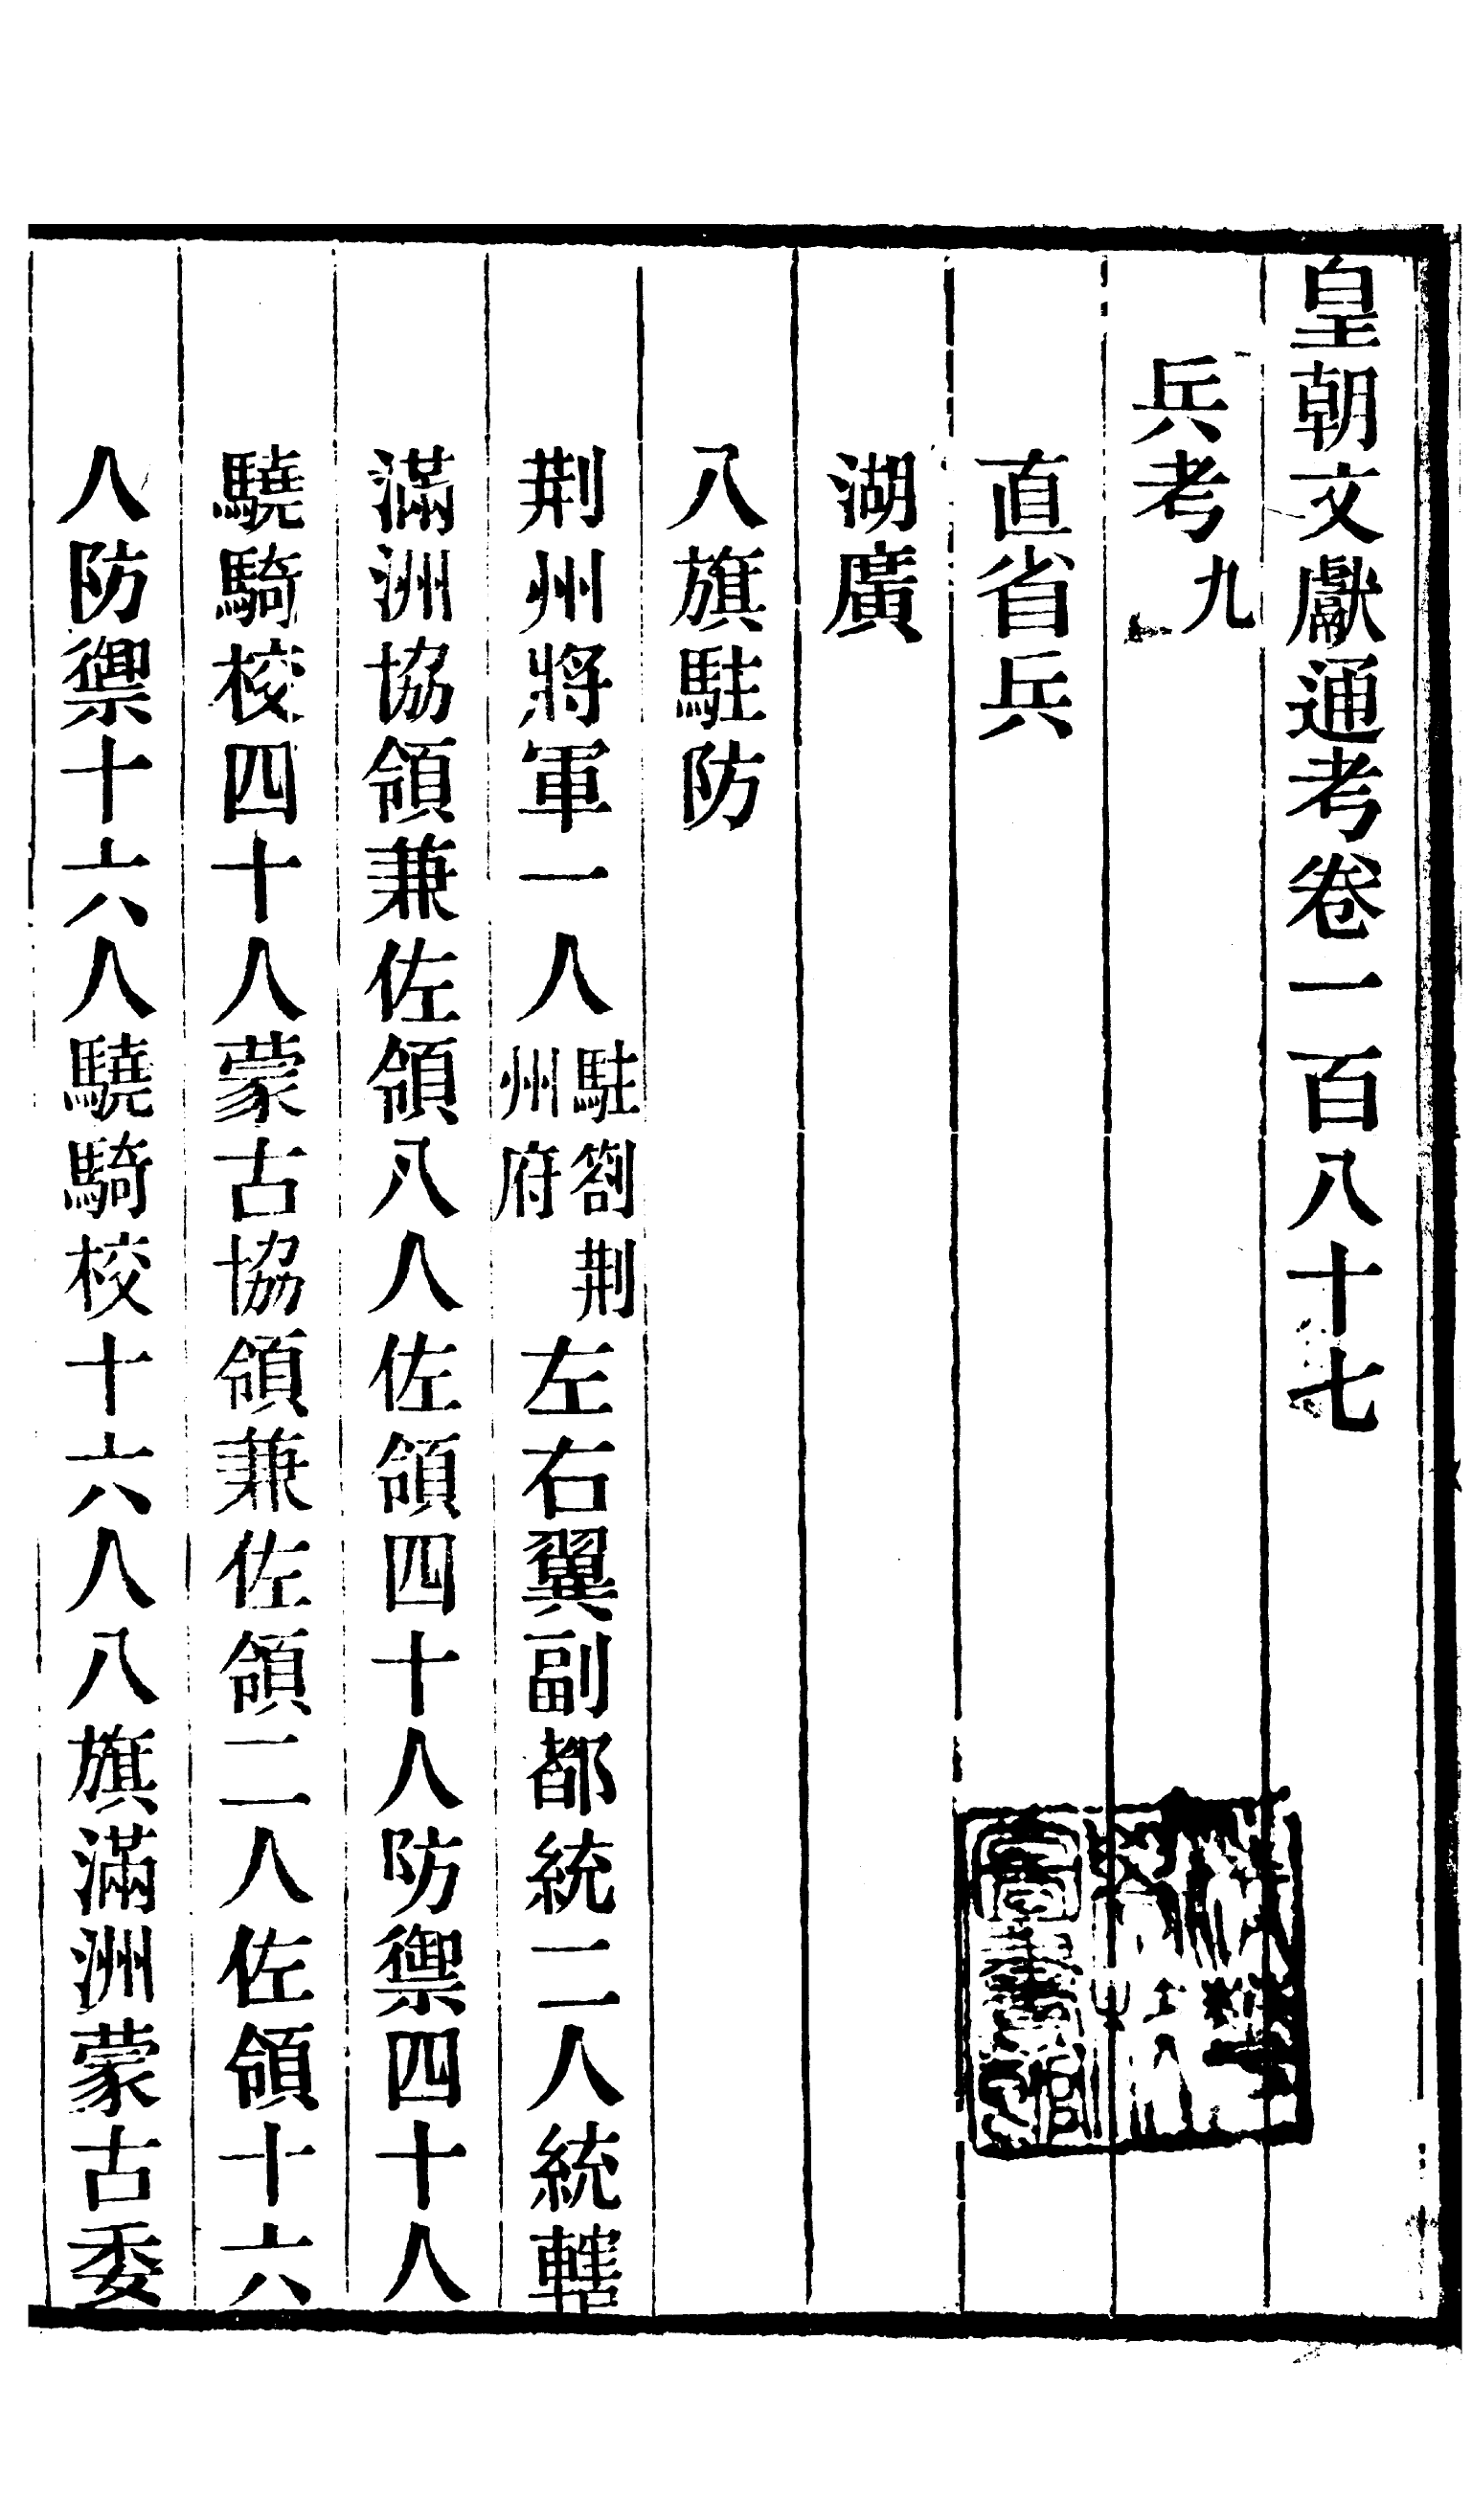 皇朝文獻通考卷一百八十七
兵考九
直省兵
湖廣
八旗駐防
荆州將軍一人駐劄荆州府左右翼副都統二人統轄
滿洲協領兼佐領八人佐領四十人防禦四十人
驍騎校四十人蒙古協領兼佐領二人佐領十六
人防禦十六人驍騎校十六人八旗滿洲蒙古委